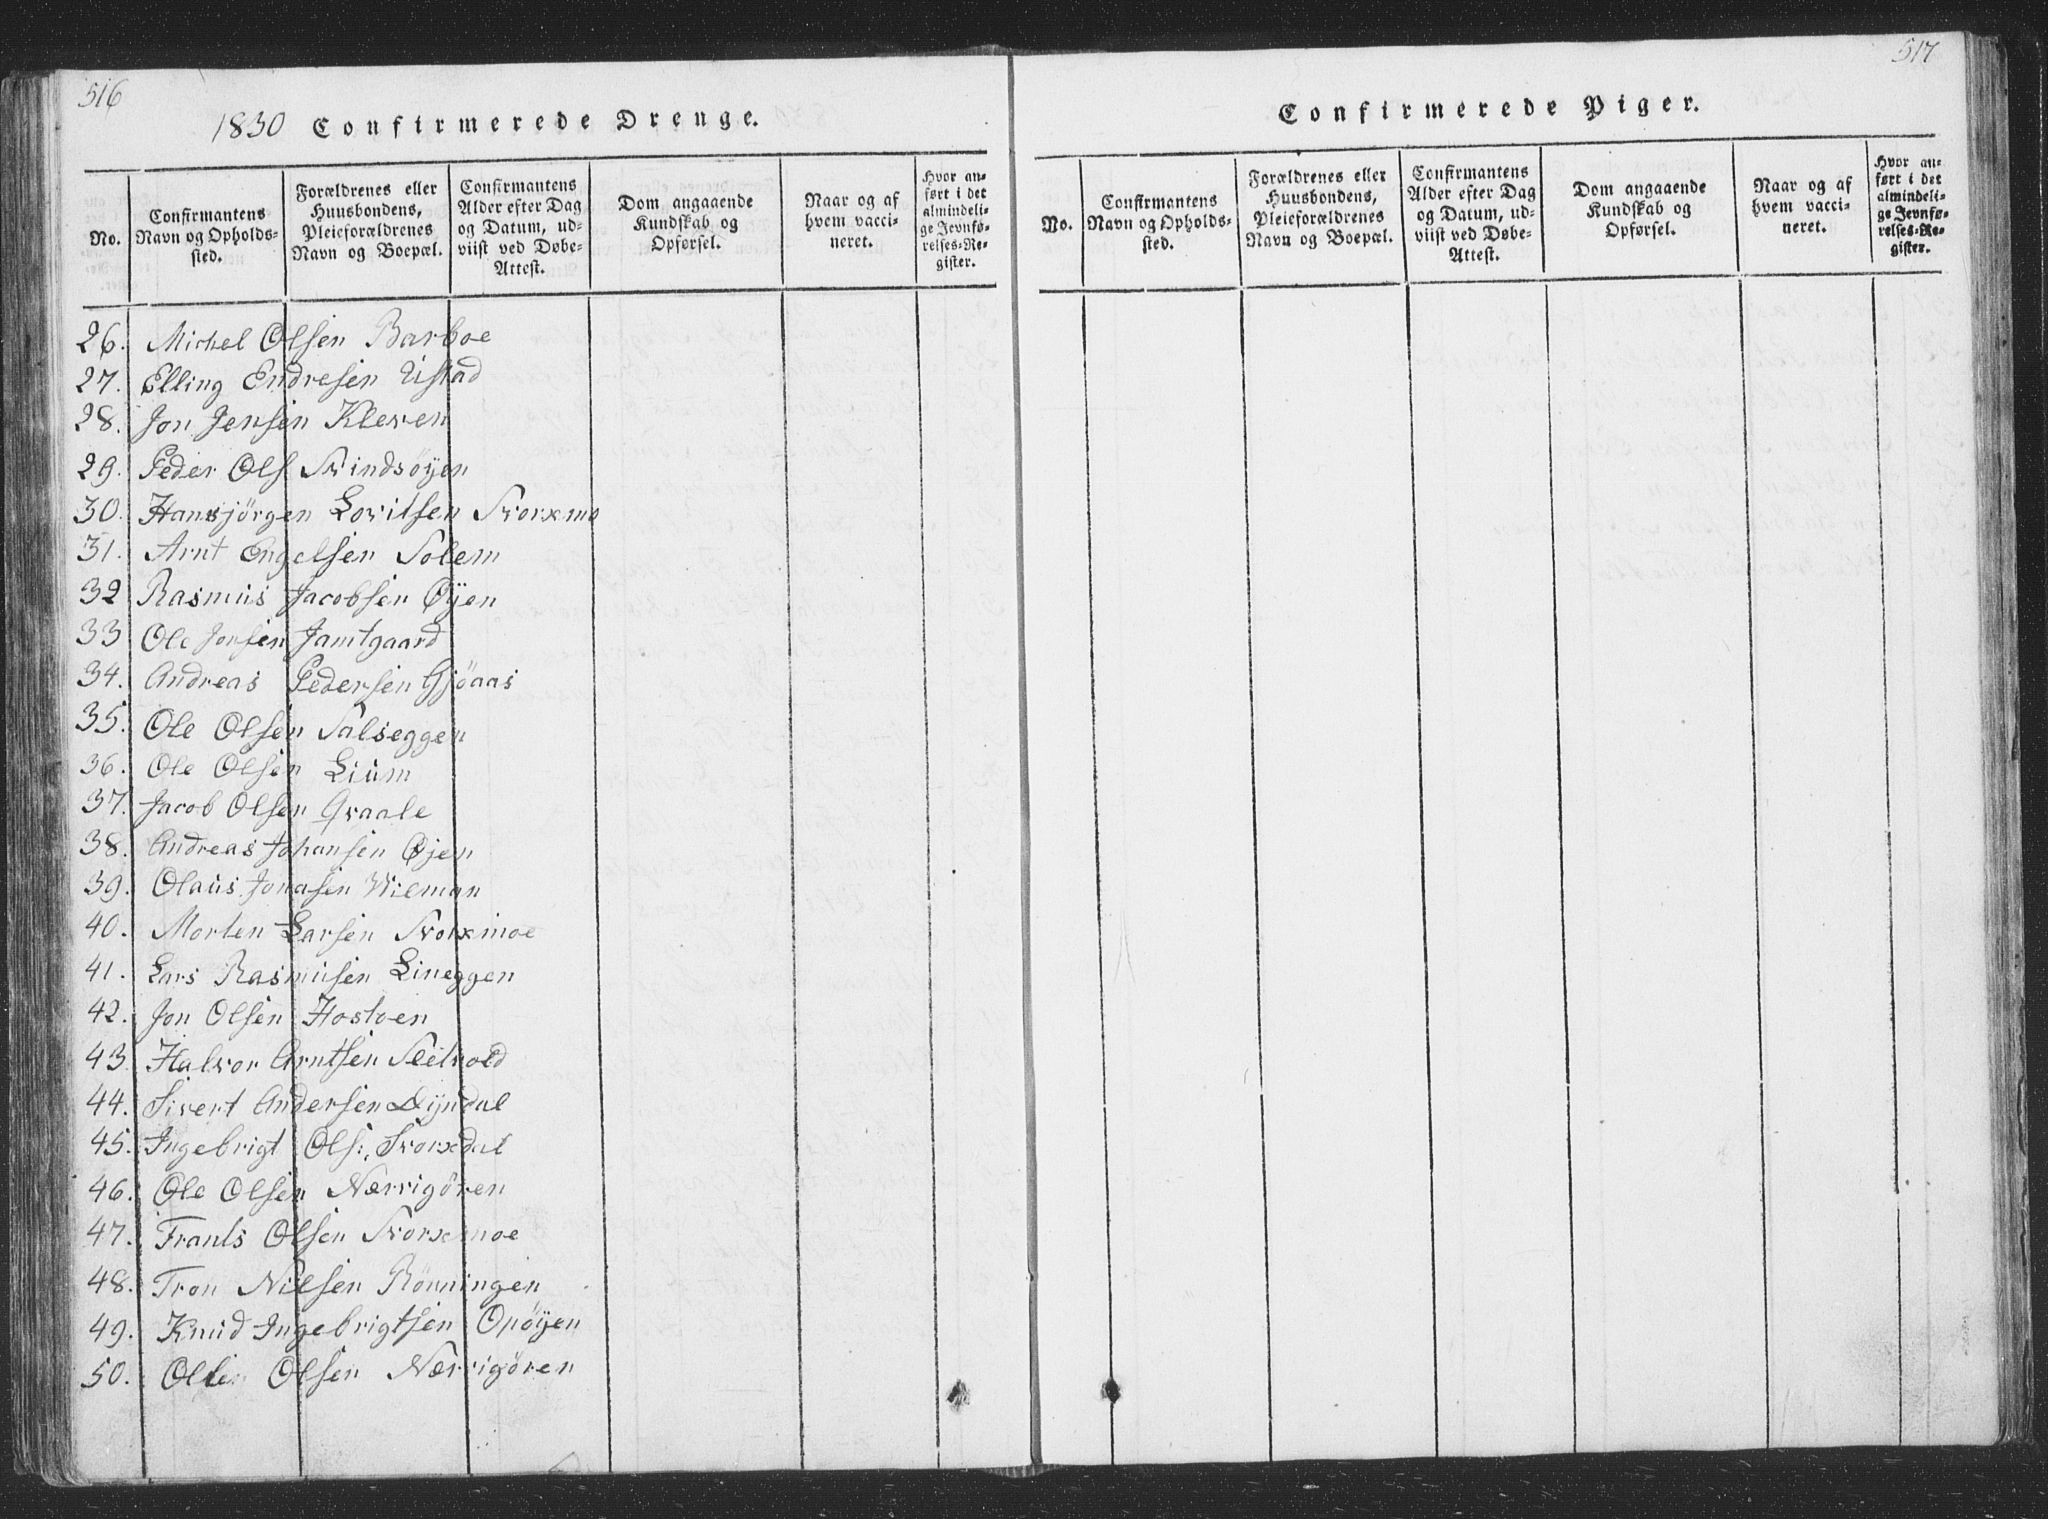 516
1830 Confirmerede Drenge.
No.
Confirmantens Navn og Opholds-
sted.
Forældrenes eller
Huusbondens,
Pleieforældrenes
Navn og Boepæl.
Confirmantens
Alder efter Dag
og Datum, ud-
viist ved Døbe-
Attest.
Dom angaaende
Kundskab og
Opførsel.
Naar og af
hvem vacci-
neret.
Hvor an-
ført i det
almindeli-
ge Jevnfø-
relses-Re-
gister.
26. Michel Olsen Barboe
27. Elling Endresen Ustad
28. Jon Jensen Kleven
29. Peder Ols Svindsöyen
30. Hansjörgen Lovitsen Svorxmo
31. Arnt Engelsen Solem
32 Rasmus Jacobsen Øyen
33 Ole Jonsen Jamtgaard
34. Andreas Pedersen Gjöaas
35. Ole Olsen Salseggen
36. Ole Olsen Lium
37. Jacob Olsen Qvaale
38. Andreas Johansen Øjen
39. Olaus Jonasen Wieman
40. Morten Larsen Svorxmoe
41. Lars Rasmusen Lineggen
42. Jon Olsen Hostoen
43. Halvor Arntsen Sletvold
44. Sivert Andersen Dyndal
45. Ingebrigt Ols: Svorxdal
46. Ole Olsen Nærrigören
47. Frants Olsen Svorxmoe
48. Tron Nielsen Rönningen
49. Knud Ingebrigtsen Opöyen
50. Olsen Nærrigören
517
Confirmerede Piger.
No.
Confirmantens
Navn og Opholds-
sted.
Forældrenes eller
Huusbondens,
Pleieforældrenes
Navn og Boepæl.
Confirmantens
Alder efter Dag
og Datum, ud-
viist ved Døbe-
Attest.
Dom angaaende
Kundskab og
Opførsel.
Naar og af
hvem vacci-
neret.
Hvor an-
ført i det
almindeli-
ge Jevnfø-
relses-Re-
gister.